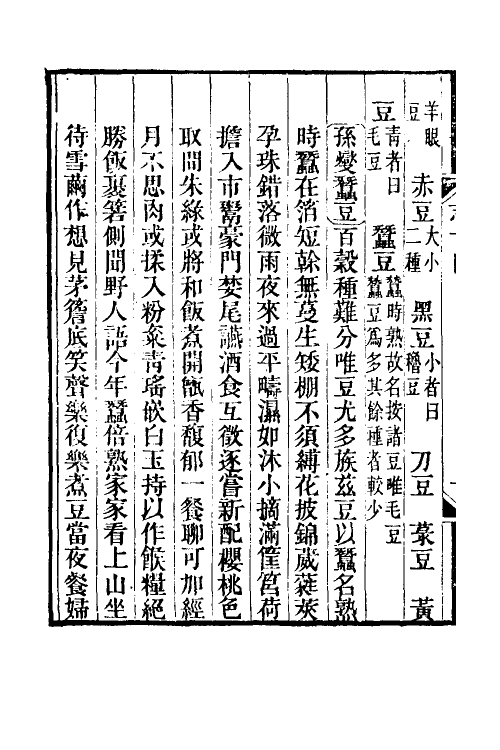 羊眼豆 赤豆大小二種 黑豆小者曰穭豆 刀豆 菉豆 黃
豆青者曰毛豆 蠶豆蠶時熟故名按諸豆唯毛豆蠶豆爲多其餘種者較少
孫燮蠶豆百穀種難分唯豆尤多族茲豆以蠶名熟
時蠶在箔短榦無蔓生矮棚不須縛花披錦葳蕤莢
孕珠錯落微雨夜來過平疇濕如沐小摘滿筐筥荷
擔入市鬻豪門婪尾讌酒食互徵逐嘗新配櫻桃色
取間朱綠或將和飯煮開甑香馥郁一餐聊可加經
月不思肉或揉入粉粢青瑤嵌白玉持以作餱糧絕
勝飯裹箬側聞野人語今年蠶倍熟家家看上山坐
待雪繭作想見茅簷底笑聲樂復樂煮豆當夜餐婦